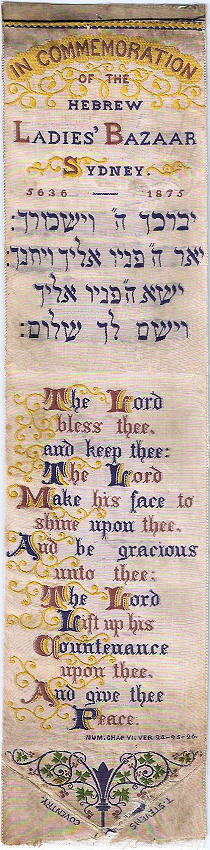 IN COMMEMORATION
OF THE
HEBREW
LADIES' BAZAAR
SYDNEY.
5636 — 1875
יברכך ה" וישמורך:
יאר ה" פניו אליך ויחנך:
ישא ה" פניו אליך
וישם לך שלום:
The Lord
bless thee.
and keep thee:
The Lord
Make his face to
shine upon thee.
And be gracious
unto thee:
The Lord
Lift up his
Countenance
upon thee.
And give thee
Peace.
NUM. CHAP VI. VER 24-25-26.
COVENTRY. T. STEVENS